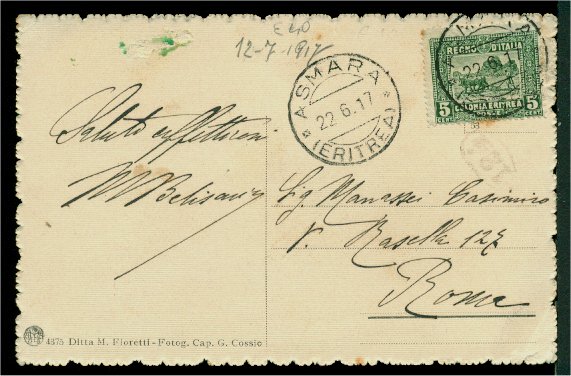 12-7-1917
ASMARA
22.6.17
(ERITREA)
REGNO D'ITALIA
COLONIA ERITREA
5 POSTE 5
CENT. CENT.
Saluti affettuosi
M Belisary
Sig. Manassei Casimiro
v. Rasella 127
Roma
4375 Ditta M. Fioretti - Fotog. Cap. G. Cossio